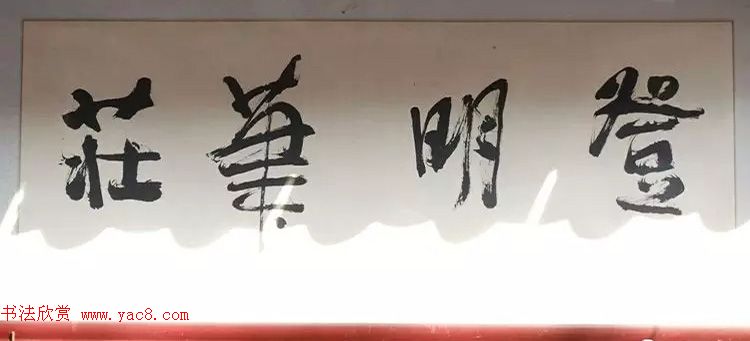 登明華莊
书法欣赏 www.yac8.com